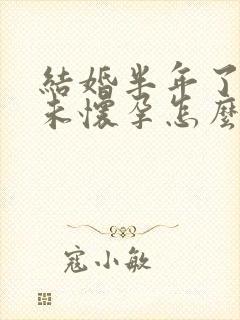 結婚半年了
未懷孕怎麼
寇小敏